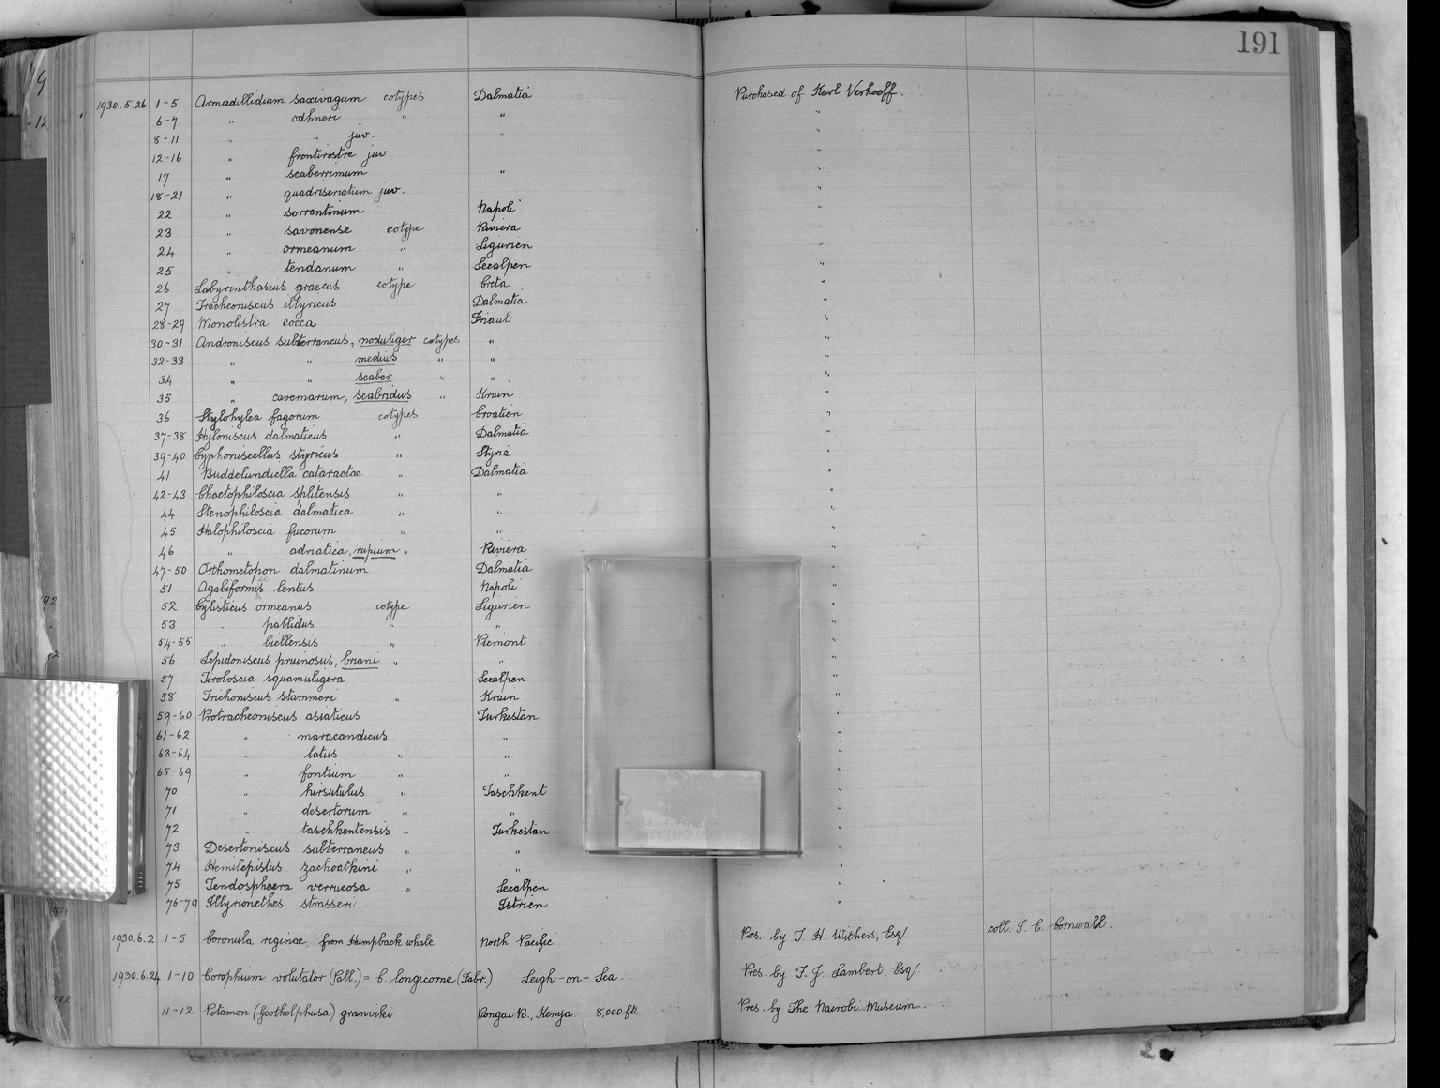 191
1930.5.26 1-5 Armadillidium saxivagum cotypes Dalmatia Purchased of Karl Verhoeff.
6-7 " odhneri " " "
8-11 " " juv. " "
12-16 " frontirostre juv "
17 " scaberrimum " "
18-21 " quadriseriatum juv. "
22 " sorrentinum Napoli "
23 " savonense cotype Riviera "
24 " ormeanum " Ligurien "
25 " tendanum " Seealpen "
26 Labyrinthasius graecus cotype Creta "
27 Tracheoniscus illyricus Dalmatia "
28-29 Monolistra cocca Friaul "
30-31 Androniscus subterraneus, noduliger cotypes " "
32-33 " " medius " " "
34 " " scaber " " "
35 " cavernarum, scabridus " Krain "
36 Stylohylea fagorum cotypes Croatien "
37-38 Hyloniscus dalmaticus " Dalmatia "
39-40 Cyphoniscellus styricus " Styria "
41 Buddelundiella cataractae " Dalmatia "
42-43 Chaetophiloscia splitensis " " "
44 Stenophiloscia dalmatica " " "
45 Halophiloscia fucorum " " "
46 " adriatica, rupium " Riviera "
47-50 Orthometopon dalmatinum Dalmatia "
51 Agabiformis lentus Napoli "
52 Cylisticus ormeanus cotype Ligurien "
53 " pallidus " " "
54-55 " biellensis " Piemont "
56 Lepidoniscus pruinosus, briani " " "
57 Tiroloscia squamuligera Seealpen "
58 Trichoniscus stammeri " Krain "
59-60 Protracheoniscus asiaticus Turkestan "
61-62 " maracandicus " "
63-64 " latus " " "
65-69 " fontium " " "
70 " hirsutulus " Taschkent "
71 " desertorum " " "
72 " taschkentensis " Turkestan "
73 Desertoniscus subterraneus " " "
74 Hemilepistus zachvatkini " " "
75 Tendosphaera verrucosa " Seealpen "
76-79 Illyrionethes strasseri Istrien "
1930.6.2 1-5 Coronula reginae from Humpback whale North Pacific Pres. by T. H. Withers, Esq/ coll. I. E. Cornwall.
1930.6.24 1-10 Corophium volutator (Pall.) = C. longicorne (Fabr.) Leigh-on-Sea. Pres. by F. J. Lambert Esq/.
11-12 Potamon (Geothelphusa) granviki R., Kenya 8,000 ft Pres. by The Nairobi Museum.